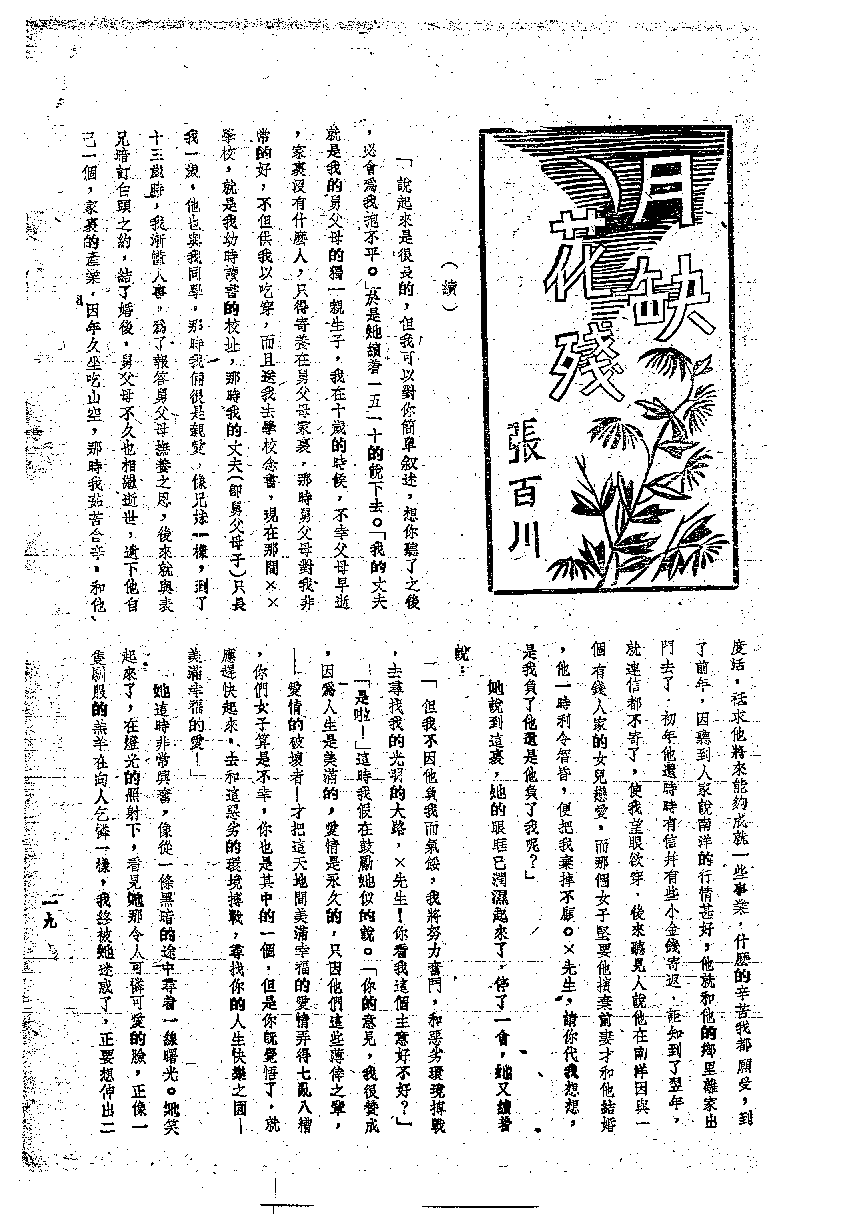 月缺花殘
張百川
（續）
「說起來是很長的，但我可以對你簡單叙述，想你聽了之後
，必會爲我抱不平。」於是她續着一五一十的說下去。「我的丈夫
就是我的舅父母的獨一親生子，我在十歲的時候，不幸父母早逝
，家裏沒有什麽人，只得寄養在舅父母家裏，那時舅父母對我非
常的好，不但供我以吃穿，而且送我去學校念書，現在那間××
學校，就是我幼時讀書的校址，那時我的丈夫（卽舅父母子）只長
我一歲，他也與我同學，那時我倆很是親愛，像兄妹一樣，到了
十三歲時，我漸懂人事，爲了報答舅父母撫養之恩，後來就與表
兄暗訂白頭之約，結了婚後，舅父母不久也相繼逝世，遺下他自
己一個，家裏的產業，因年久坐吃山空，那時我茹苦含辛，和他
度活，祗求他將來能夠成就一些事業，什麽的辛苦我都願受，到
了前年，因聽到人家說南洋的行情甚好，他就和他的鄉里離家出
門去了，初年他還時時有信幷有些小金錢寄返，詎知到了翌年，
就連信都不寄了，使我望眼欲穿，後來聽見人說他在南洋因與一
個有錢人家的女兒戀愛，而那個女子堅要他捨棄前妻才和他結婚
，他一時利令智昏，便把我棄掉不顧。×先生，請你代我想想，
是我負了他還是他負了我呢？」
她說到這裏，她的眼眶已潤濕起來了，停了一會，她又續着
說：
「但我不因他負我而氣餒，我將努力奮鬥，和惡劣環境搏戰
，去尋找我的光明的大路，×先生！你看我這個主意好不好？」
「是啦！」這時我假在鼓勵她似的說。「你的意見，我很贊成
，因爲人生是美滿的，愛情是永久的，只因他們這些薄倖之輩，
—愛情的破壞者—才把這天地間美滿幸福的愛情弄得七亂八糟
，你們女子算是不幸，你也是其中的一個，但是你旣覺悟了，就
應趕快起來，去和這惡劣的環境搏戰，尋找你的人生快樂之園—
美滿幸福的愛！」
她這時非常興奮，像從一條黑暗的途中尋着一線曙光。她笑
起來了，在燈光的照射下，看見她那令人可憐可愛的臉，正像一
隻馴服的羔羊在向人乞憐一樣，我終被她迷惑了，正要想伸出二
一九